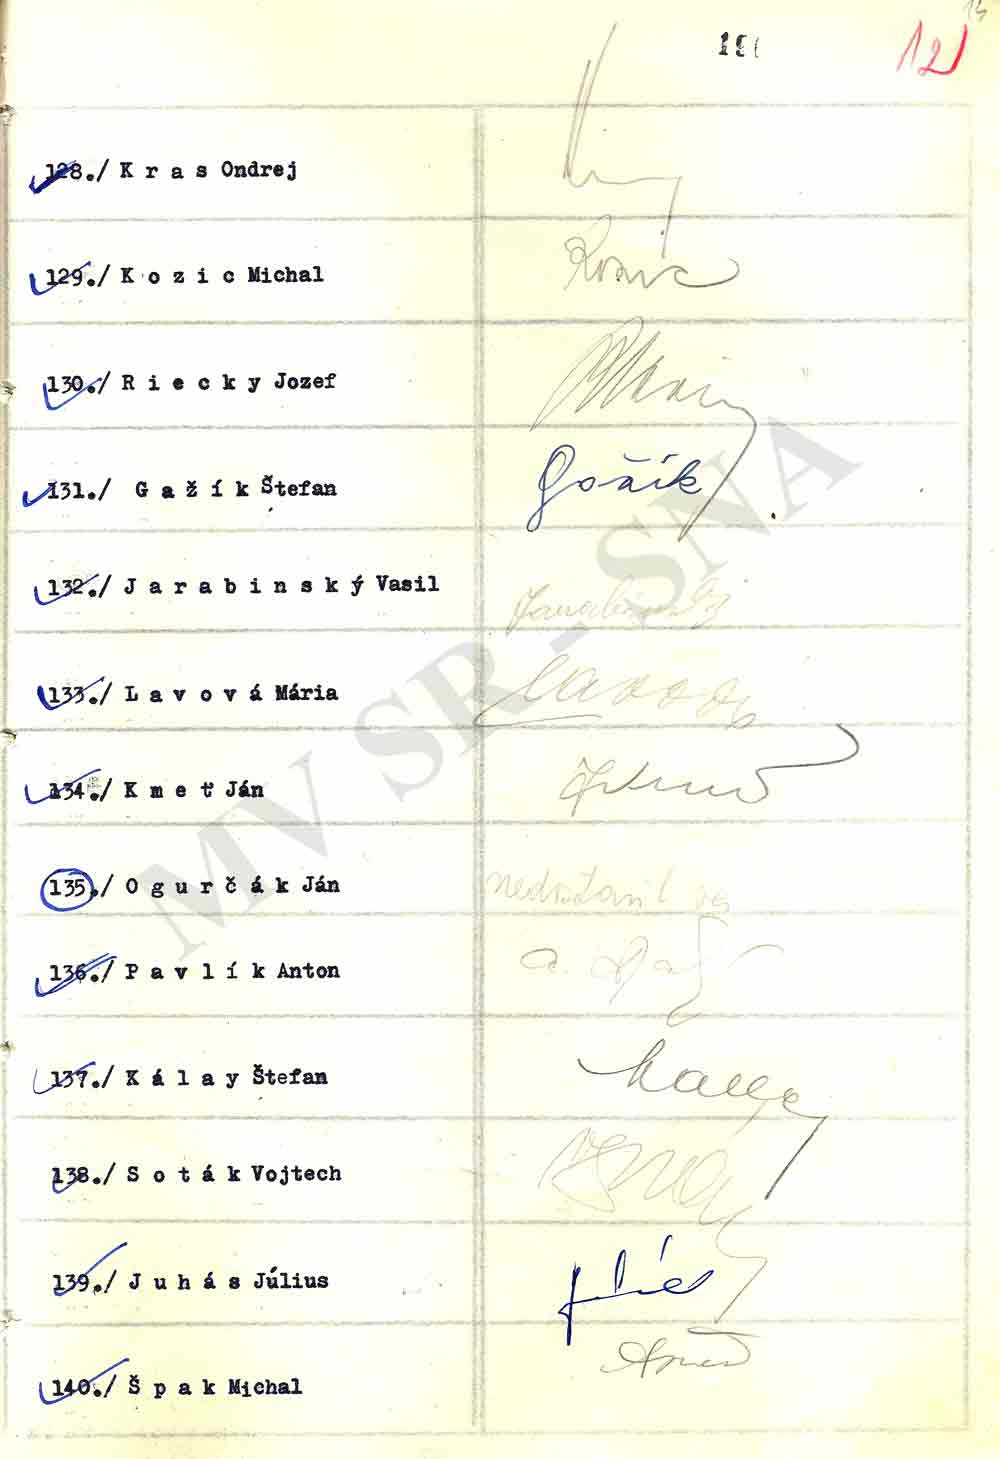 12
128./ K r a s Ondrej
129./ K o z i c Michal
Kozic
130./ R i e c k y Jozef
131./ G a ž í k Štefan
Gažík
132./ J a r a b i n s k ý Vasil
Jarabinský
133./ L a v o v á Mária
Lavová
134./ K m e ť Ján
135./ O g u r č á k Ján
nedostavil sa
136./ P a v l í k Anton
137./ K á l a y Štefan
138./ S o t á k Vojtech
139./ J u h á s Július
140./ Š p a k Michal
MV SR - SNA